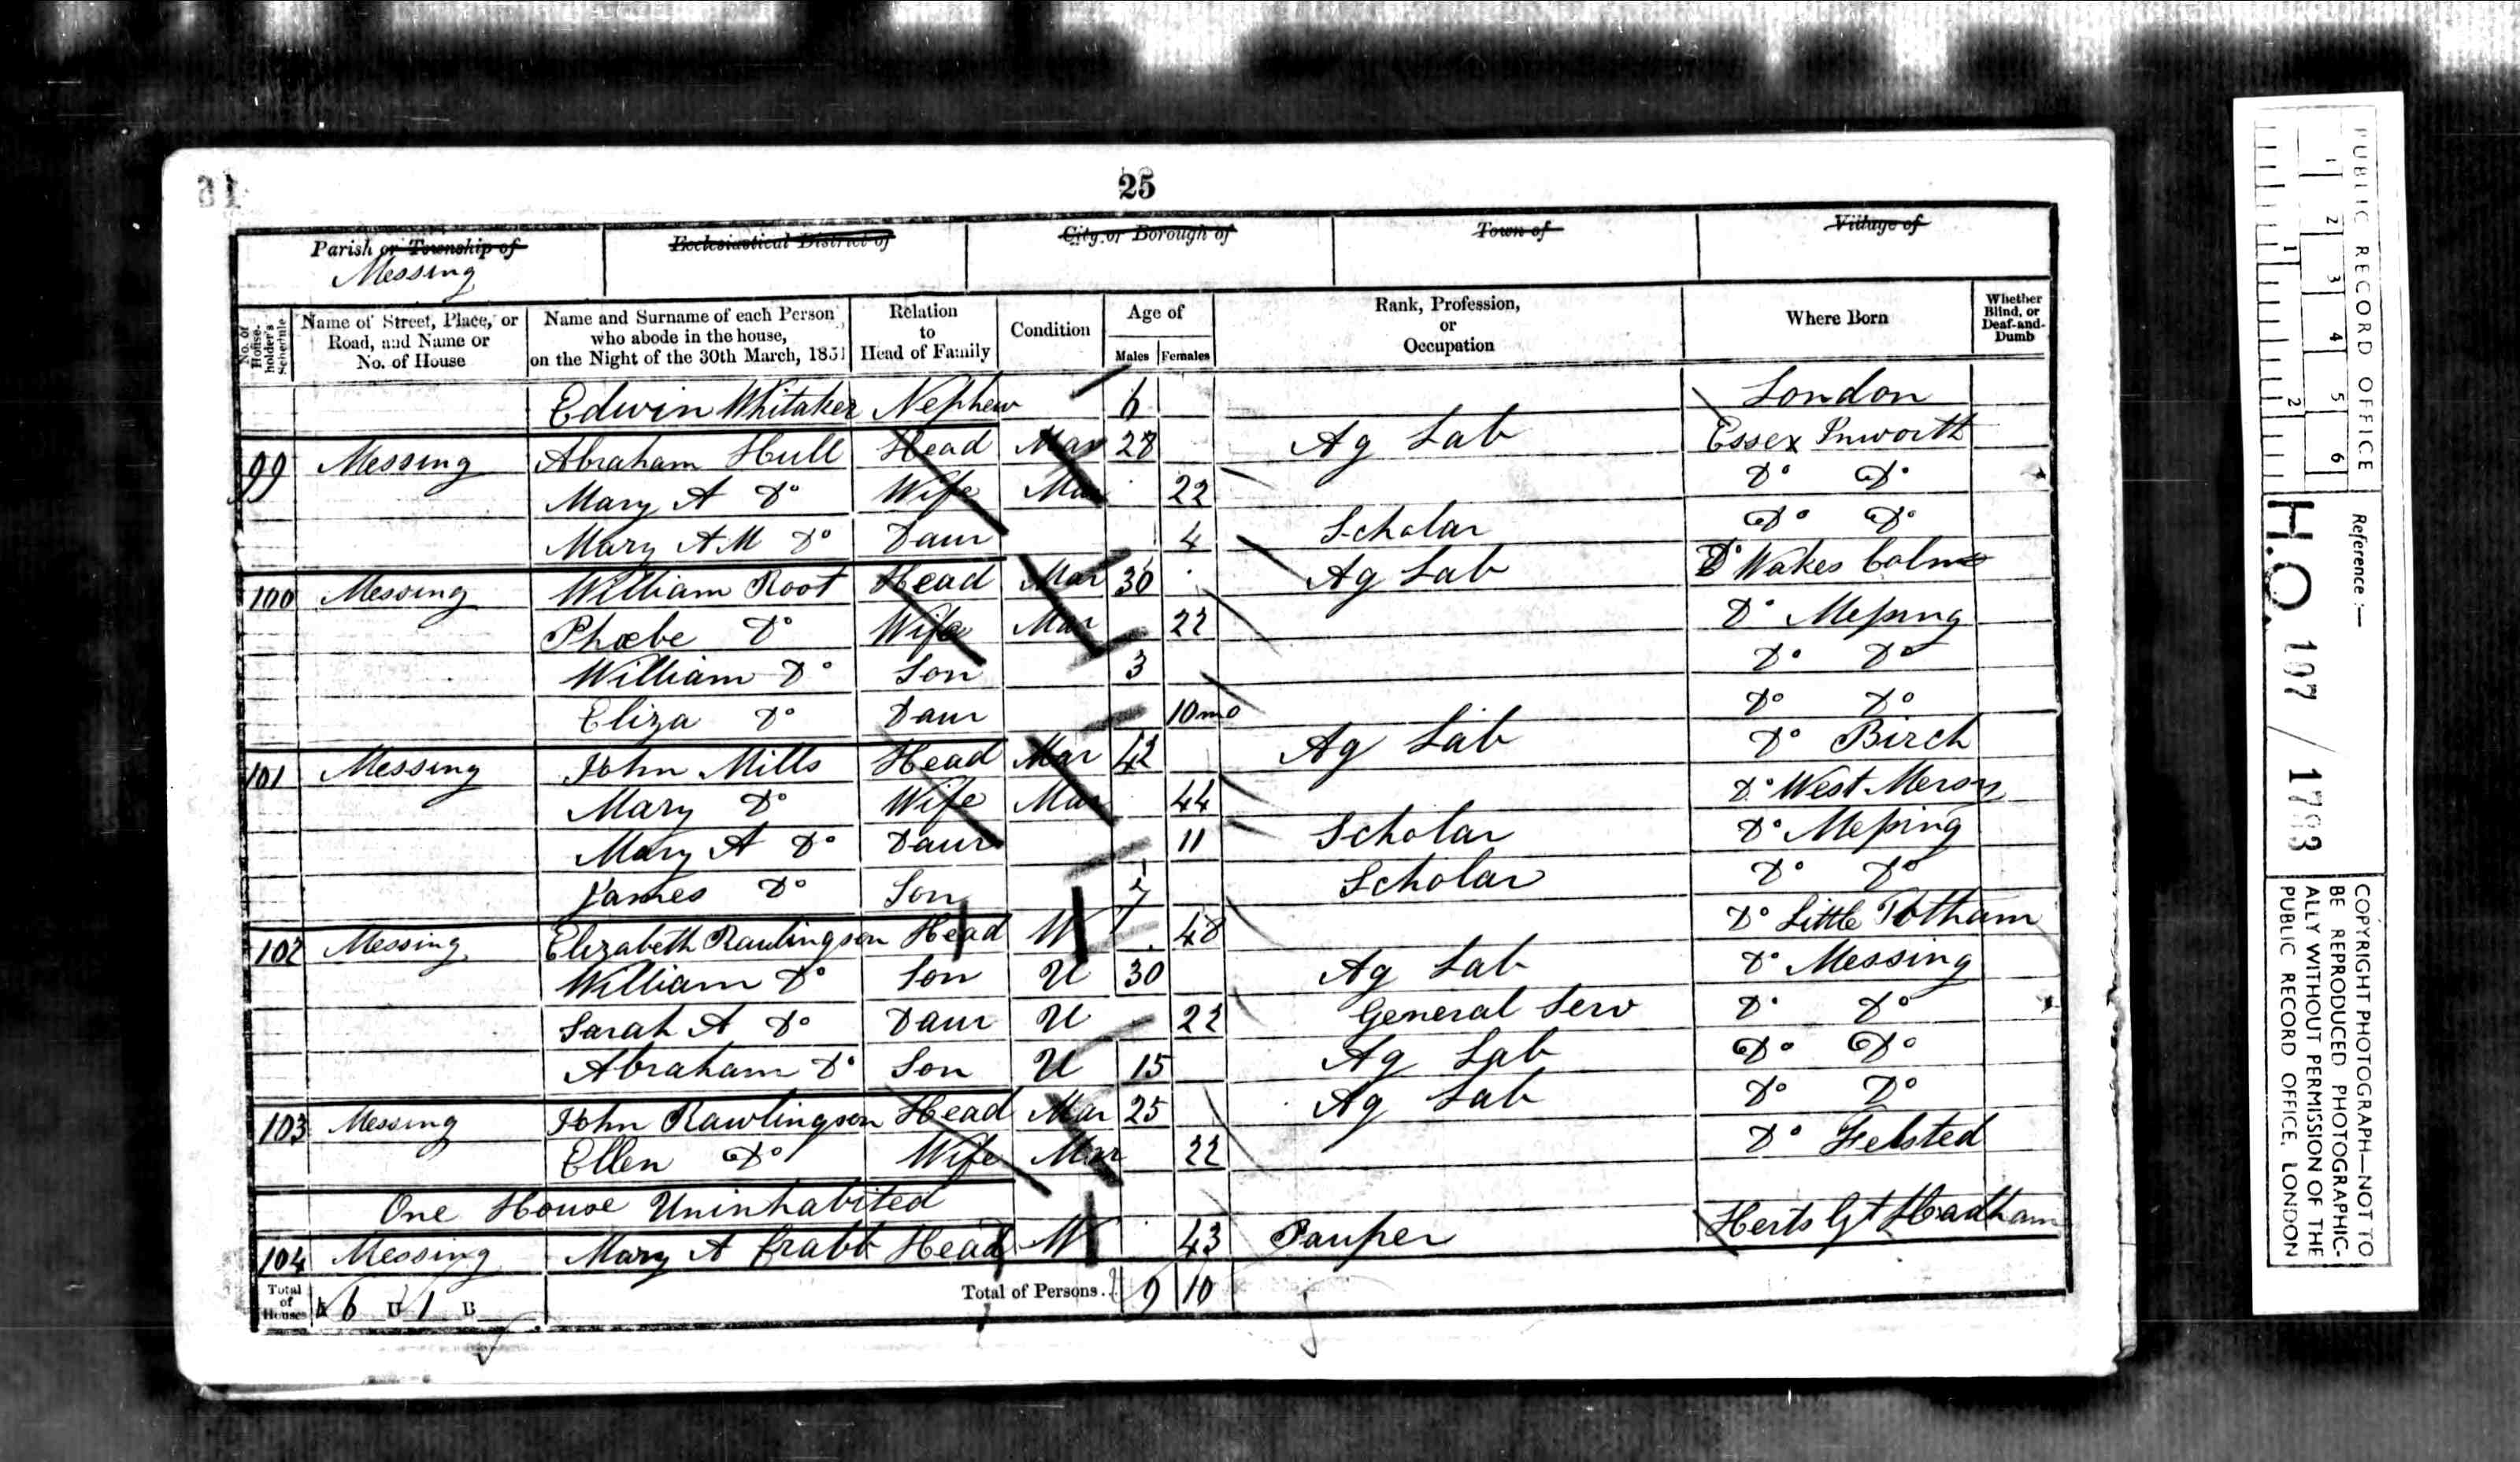 25
Parish or Township of Ecclesiastical District of City or Borough of Town of Village of
Messing
No. of House-holder's Schedule Name of Street, Place, or Road, and Name or No. of House Name and Surname of each Person who abode in the house, on the Night of the 30th March, 1851 Relation to Head of Family Condition Age of Males Females Rank, Profession, or Occupation Where Born Whether Blind, or Deaf-and-Dumb
Edwin Whitaker Nephew 6 London
99 Messing Abraham Hull Head Mar 28 Ag Lab Essex Inworth
Mary A Do Wife Mar 22 Do Do
Mary A M Do Daur 4 Scholar Do Do
100 Messing William Root Head Mar 30 Ag Lab Do Wakes Colne
Phœbe Do Wife Mar 22 Do Messing
William Do Son 3 Do Do
Eliza Do Daur 10mo Do Do
101 Messing John Mills Head Mar 42 Ag Lab Do Birch
Mary Do Wife Mar 44 Do West Mersey
Mary A Do Daur 11 Scholar Do Messing
James Do Son 7 Scholar Do Do
102 Messing Elizabeth Rawlingson Head W 48 Do Little Totham
William Do Son U 30 Ag Lab Do Messing
Sarah A Do Daur U 22 General Serv Do Do
Abraham Do Son U 15 Ag Lab Do Do
103 Messing John Rawlingson Head Mar 25 Ag Lab Do Do
Ellen Do Wife Mar 22 Do Felsted
One House Uninhabited
104 Messing Mary A Crabb Head W 43 Pauper Herts Gt Hadham
Total of Houses I 6 U 1 B Total of Persons 9 10
PUBLIC RECORD OFFICE
1 2 3 4 5 6
1 2
Reference :—
H.O. 107 / 1783
COPYRIGHT PHOTOGRAPH—NOT TO
BE REPRODUCED PHOTOGRAPHIC-
ALLY WITHOUT PERMISSION OF THE
PUBLIC RECORD OFFICE, LONDON